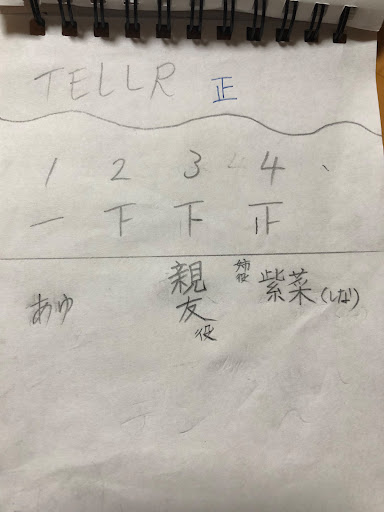 TELLR 正
1 2 3 4 、
一 下 下 正
あゆ 親友役 姉役 紫菜(しな)